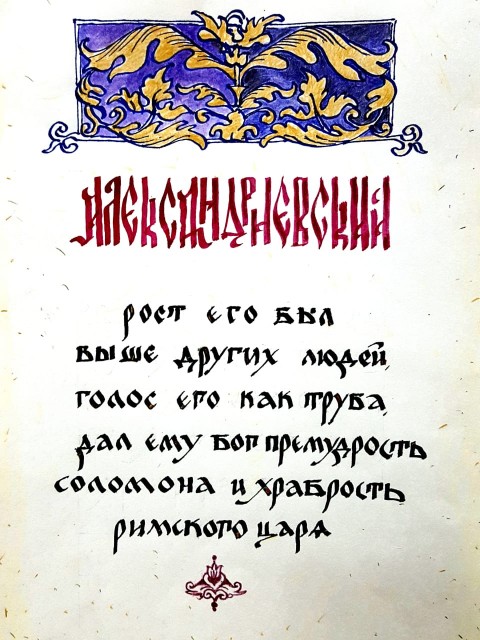 АЛЕКСАНДР НЕВСКИЙ
рост его был
выше других людей,
голос его как труба,
дал ему бог премудрость
соломона и храбрость
римского царя